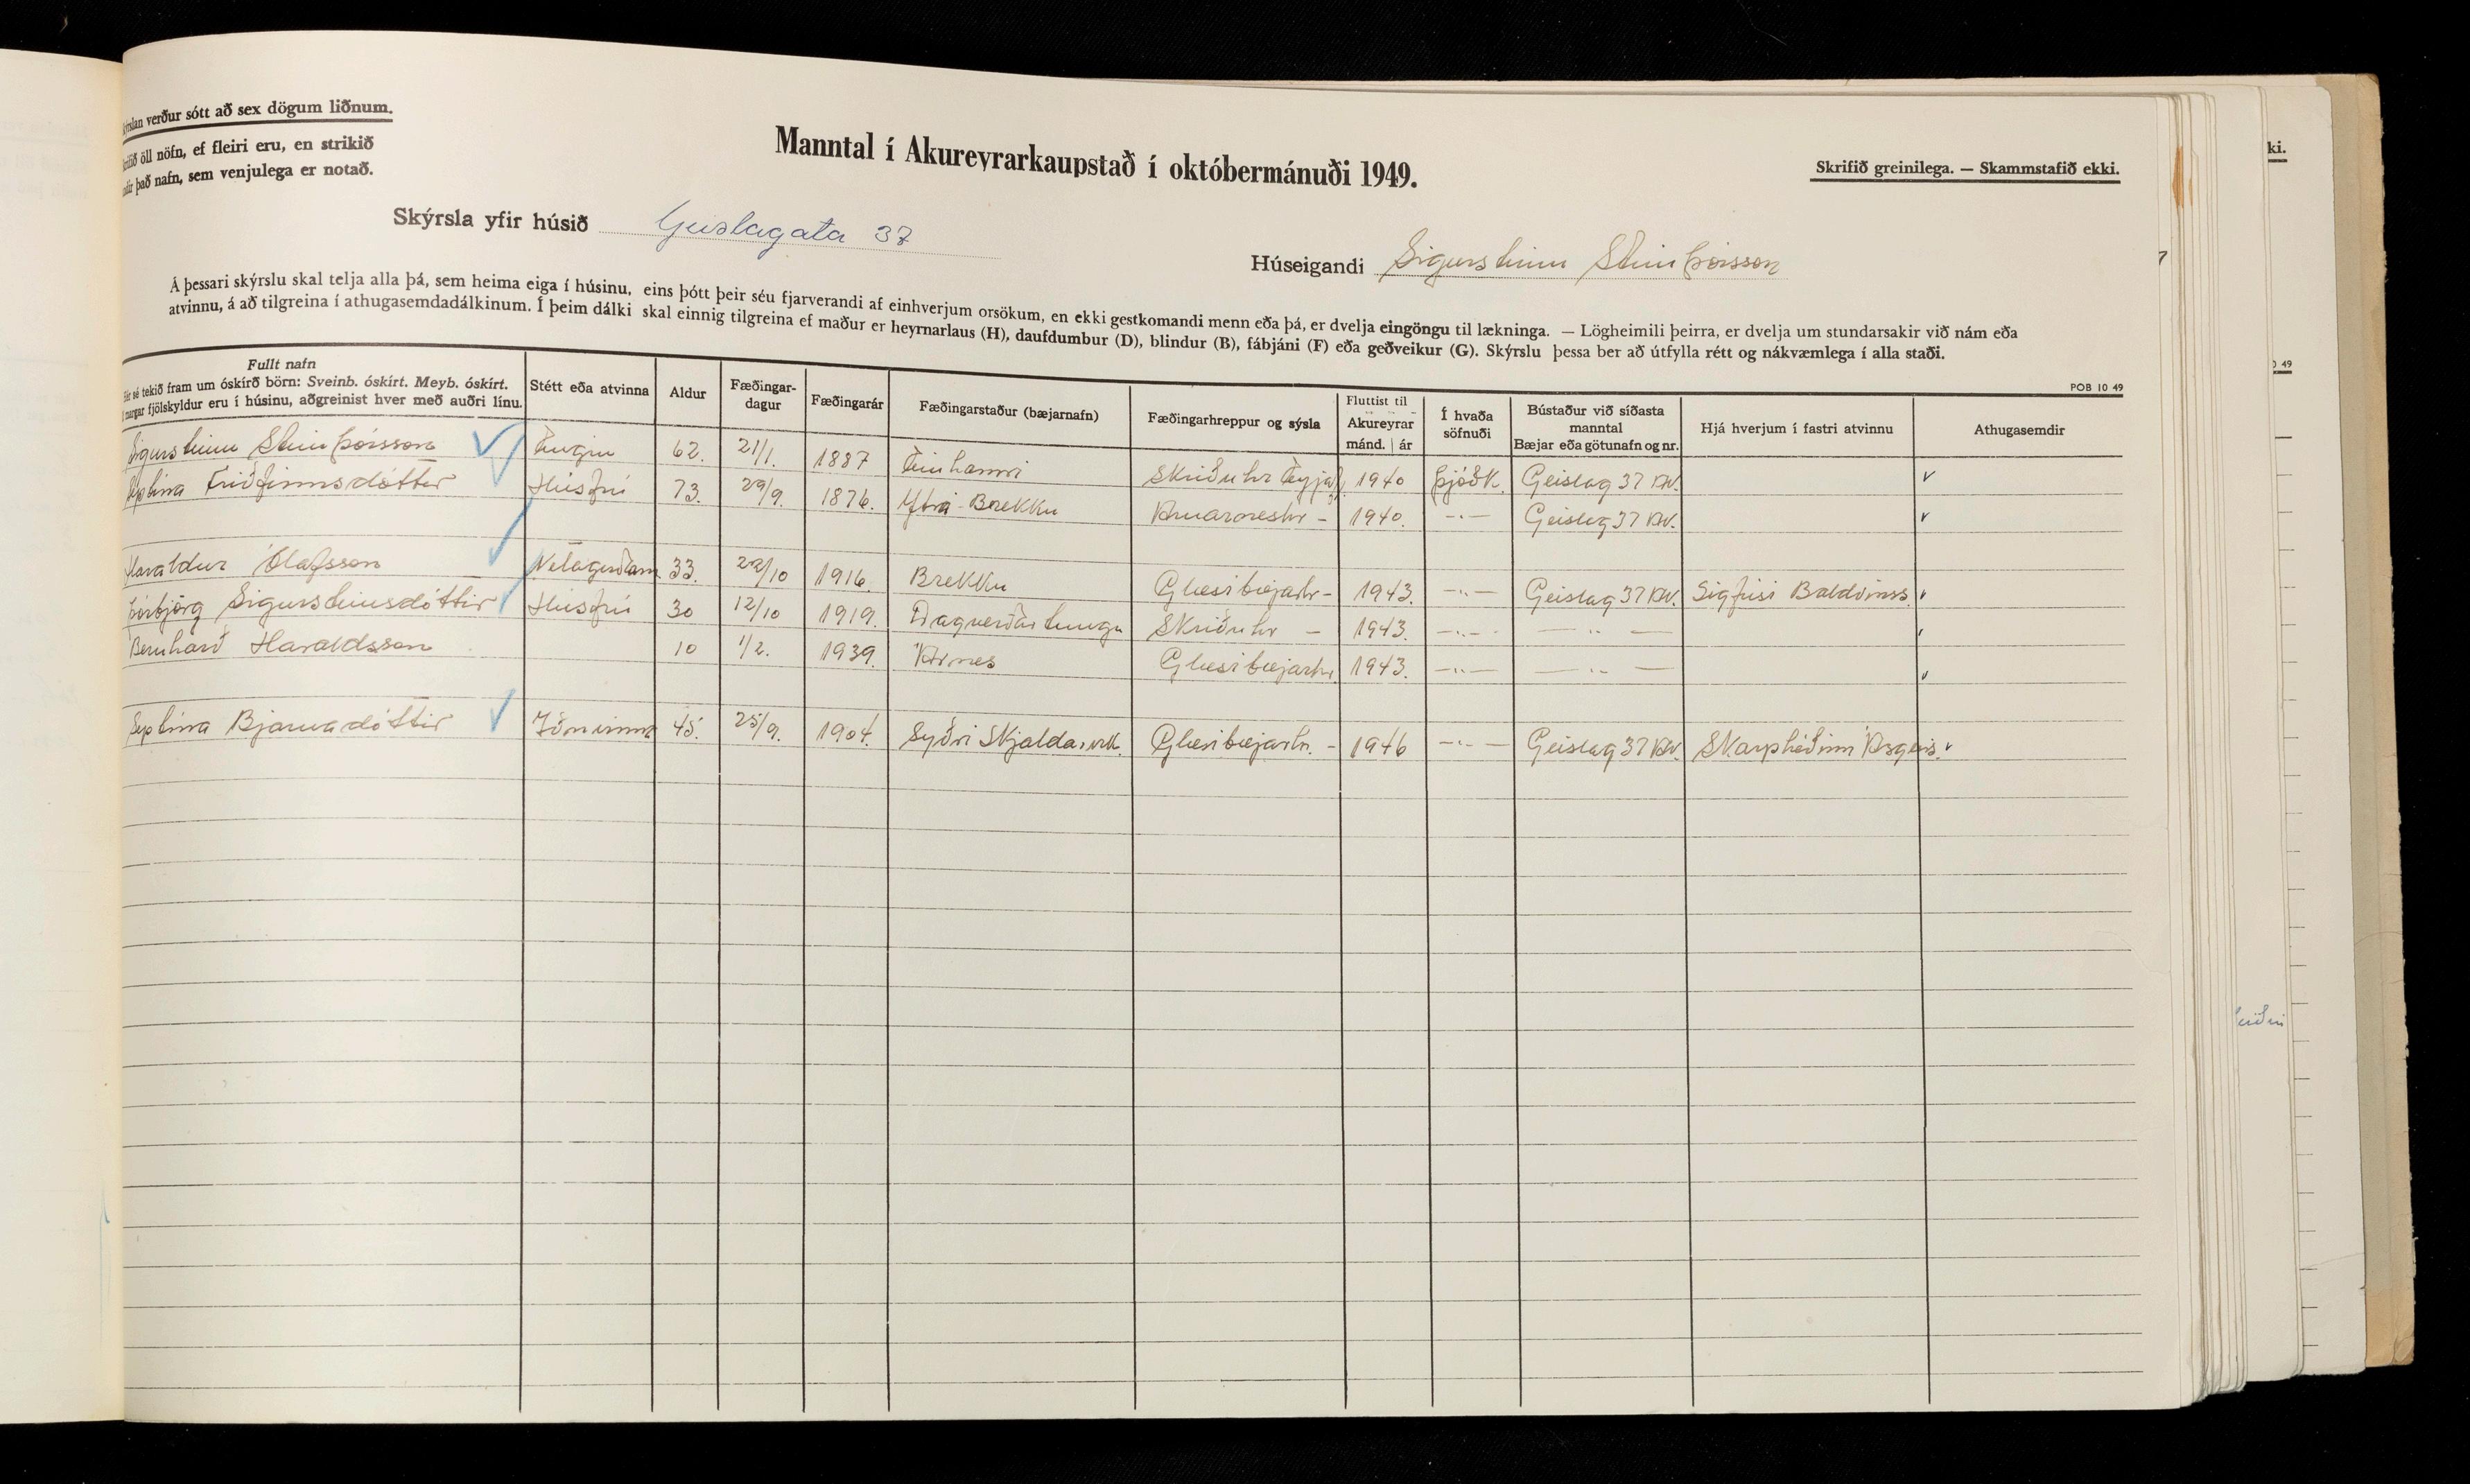 verður sótt að sex dögum liðnum.
öll nöfn, ef fleiri eru, en strikið
það nafn, sem venjulega er notað.
Manntal í Akureyrarkaupstað í októbermánuði 1949.
Skrifið greinilega. — Skammstafið ekki.
Skýrsla yfir húsið Geislagata 37
Húseigandi Sigursteinn Steinþórsson
Á þessari skýrslu skal telja alla þá, sem heima eiga í húsinu, eins þótt þeir séu fjarverandi af einhverjum orsökum, en ekki gestkomandi menn eða þá, er dvelja eingöngu til lækninga. — Lögheimili þeirra, er dvelja um stundarsakir við nám eða
atvinnu, á að tilgreina í athugasemdadálkinum. Í þeim dálki skal einnig tilgreina ef maður er heyrnarlaus (H), daufdumbur (D), blindur (B), fábjáni (F) eða geðveikur (G). Skýrslu þessa ber að útfylla rétt og nákvæmlega í alla staði.
POB 10 49
Fullt nafn
sé tekið fram um óskírð börn: Sveinb. óskírt. Meyb. óskírt.
margar fjölskyldur eru í húsinu, aðgreinist hver með auðri línu.
Stétt eða atvinna
Aldur
Fæðingar-
dagur
Fæðingarár
Fæðingarstaður (bæjarnafn)
Fæðingarhreppur og sýsla
Fluttist til
Akureyrar
mánd. | ár
Í hvaða
söfnuði
Bústaður við síðasta
manntal
Bæjar eða götunafn og nr.
Hjá hverjum í fastri atvinnu
Athugasemdir
Sigursteinn Steinþórsson Engin 62. 21/1. 1887 Einhamri Skriðuhr Eyjaf. 1940 Þjóðk. Geislag 37 Ak.
Septína Friðfinnsdóttir Húsfrú 73. 29/9. 1876. Ytri-Brekku Arnarneshr - 1940. -"- Geislag 37 Ak.
Haraldur Ólafsson 33. 22/10 1916. Brekku Glæsibæjarhr- 1943. -"- Geislag 37 Ak. Sigfúsi Baldvinss.
Þórbjörg Sigursteinsdóttir Húsfrú 30 12/10 1919. Dagverðartungu Skriðuhr - 1943. -"- — " —
Bernharð Haraldsson 10 1/2. 1939. Árnes Glæsibæjarhr. 1943. -"- — " —
Septína Bjarnadóttir Iðnvinna 45. 25/9. 1904. Syðri Skjaldarvík. Glæsibæjarhr. - 1946 -"- Geislag 37 Ak. Skarphéðinn Ásgeirs.